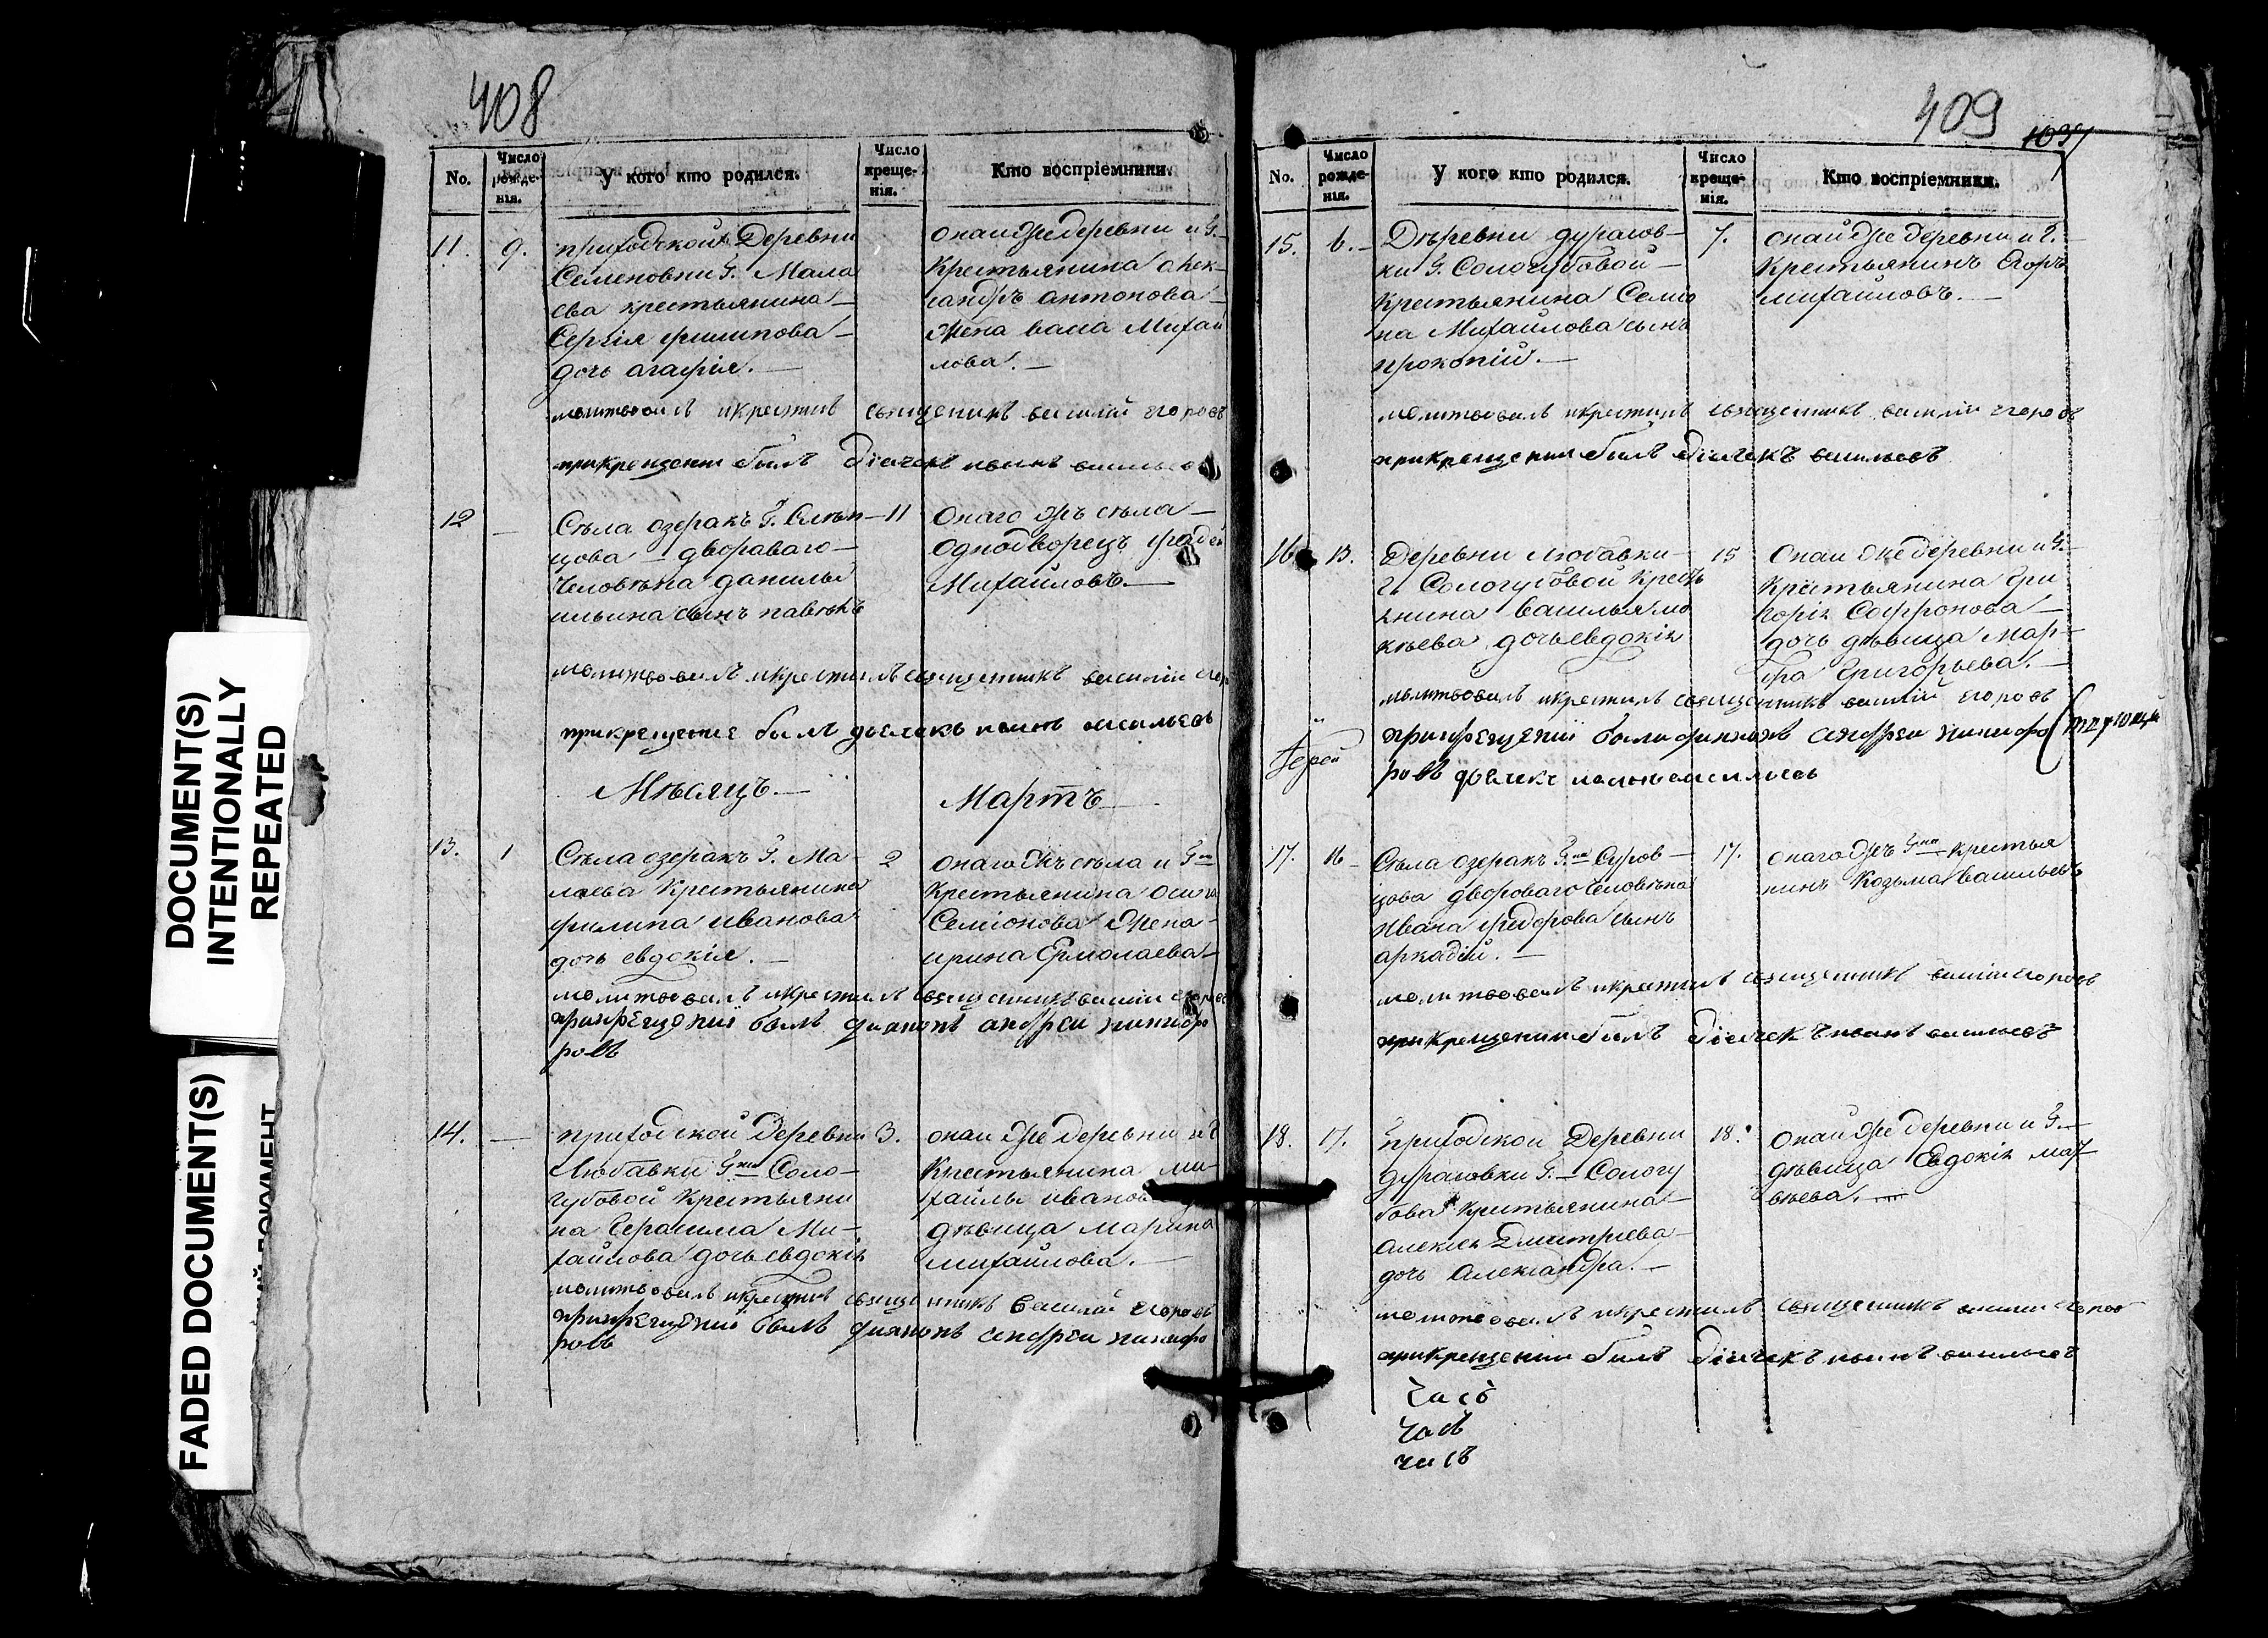 408
No.
Число рожде-нія.
У кого кто родился.
Число креще-нія.
Кто воспріемники.
11. 9.
приходской Деревни
Семеновки Г. Мала
ева крестьянина
Сергія филипова
дочь агафія.
онаи же деревни и Г.
Крестьянина
антонова
Жена Михаи
лова.
молитвовалъ икрестилъ священикъ василіи егоровъ
прикрещении былъ діячекъ иванъ васильев
12 — 11
Села озеракъ Г. Слеп
цова двораваго
Человека данилы
ильина сынъ павелъ
Онаго жъ села
Однодворецъ
Михаиловъ.
молитвовалъ икрестилъ священникъ василіи
прикрещение былъ дьячекъ иванъ васильевъ
Месяцъ.
Мартъ
13. 1 2
Села озеракъ Г. Ма
лаева Крестьянина
филипа иванова
дочь евдокія.
онаго жъ села и Г-на
Крестьянина
Семіонова Жена
ирина Ермолаева
молитвовалъ икрестилъ священникъ василіи егоровъ
прикрещениї былъ диаконъ андреи никифо
ровъ
14. — 3.
приходской Деревни
Любавки Г-жи Соло
губовой Крестьяни
на Герасима Ми
хаилова дочь евдокія
онаи же деревни и Г
Крестьянина ми
хаилы иванова
девица марина
михаилова.
молитвовалъ икрестилъ священникъ василіи егоровъ
прикрещениї былъ диаконъ андреи никифо
ровъ
409
No.
Число рожде-нія.
У кого кто родился.
Число креще-нія.
Кто воспріемники.
15. 6. 7.
Деревни дурасов
ки Г. Сологубовой
Крестьянина Семіо
на Михаилова сынъ
прокопій.
онай же деревни и Г.
Крестьянинъ Егоръ
михаиловъ.
молитвовалъ икрестилъ священникъ василіи егоровъ
прикрещении былъ діячекъ васильевъ
16. 13. 15
Деревни Любавки
Г. Сологубовой Кресть
янина василья мо
кеева дочь евдокія
Онаи же деревни и Г.
Крестьянина Гри
горія Сафронова
дочь девица Мар
фа Григорьева.
молитвовалъ икрестилъ священникъ василіи егоровъ
прикрещениї были диаконъ андреи никифо
ровъ дьячекъ иванъ васильевъ
17. 16 17.
Села озеракъ Г-на Суров
цова двороваго Человека
Ивана федорова сынъ
аркадій.
онаго жъ Г-на крестья
нинъ Козьма васильевъ
молитвовалъ икрестилъ священникъ василіи егоровъ
прикрещении былъ діячекъ иванъ васильевъ
18. 17. 18.
приходской Деревни
дурасовки Г. Сологу
бова крестьянина
алексея Дмитриева
дочь Александра.
Онаи же деревни и Г.
девица Евдокія мат
веева.
молитвовалъ икрестилъ священникъ василіи егоров
прикрещении былъ діячекъ иванъ васильевъ
DOCUMENT(S)
INTENTIONALLY
REPEATED
FADED DOCUMENT(S)
ДОКУМЕНТ